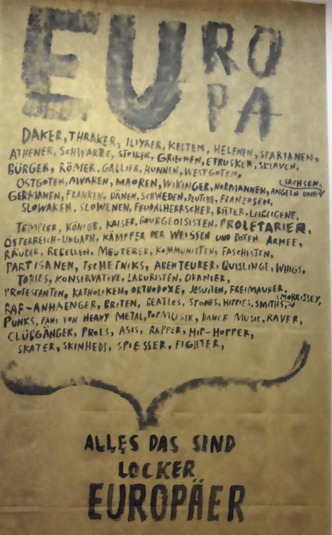 EURO
PA
DAKER, THRAKER, ILIYRER, KELTEN, HELENEN, SPARTANER,
ATHENER, SCHWARZE, STOIKER, GRIECHEN, ETRUSKER, SKLAVEN,
BÜRGER, RÖMER, GALLIER, HUNNEN, WESTGOTEN,
OSTGOTEN, AWAREN, MAUREN, WIKINGER, NORMANNEN, ANGELN UND SACHSEN,
GERMANEN, FRANKEN, DÄNEN, SCHWEDEN, DEUTSCHE, FRANZOSEN,
SLOWAKEN, SLOWENEN, FEUDALHERRSCHER, RITTER, LEIBEIGENE,
TEMPLER, KÖNIGE, KAISER, BOURGEOISISTEN, PROLETARIER,
ÖSTERREICH-UNGARN, KÄMPFER DER WEISSEN UND ROTEN ARMEE,
RÄUBER, REBELLEN, MEUTERER, KOMMUNISTEN, FASCHISTEN,
PARTISANEN, TSCHETNIKS, ABENTEURER, QUISLINGE, WHIGS,
TORIES, KONSERVATIVE, LABURISTEN, ORANIER,
PROTESTANTEN, KATHOLIKEN, ORTHODOXE, JESUITEN, FREIMAURER,
RAF-ANHAENGER, BRITEN, BEATLES, STONES, HIPPIES, SMITHS, MORRISSEY,
PUNKS, FANS VON HEAVY METAL, POPMUSIK, DANCE MUSIC, RAVER,
CLUBGÄNGER, PROLS, ASIS, RAPPER, HIP-HOPPER,
SKATER, SKINHEDS, SPIESSER, FIGHTER,
ALLES DAS SIND
LOCKER
EUROPÄER